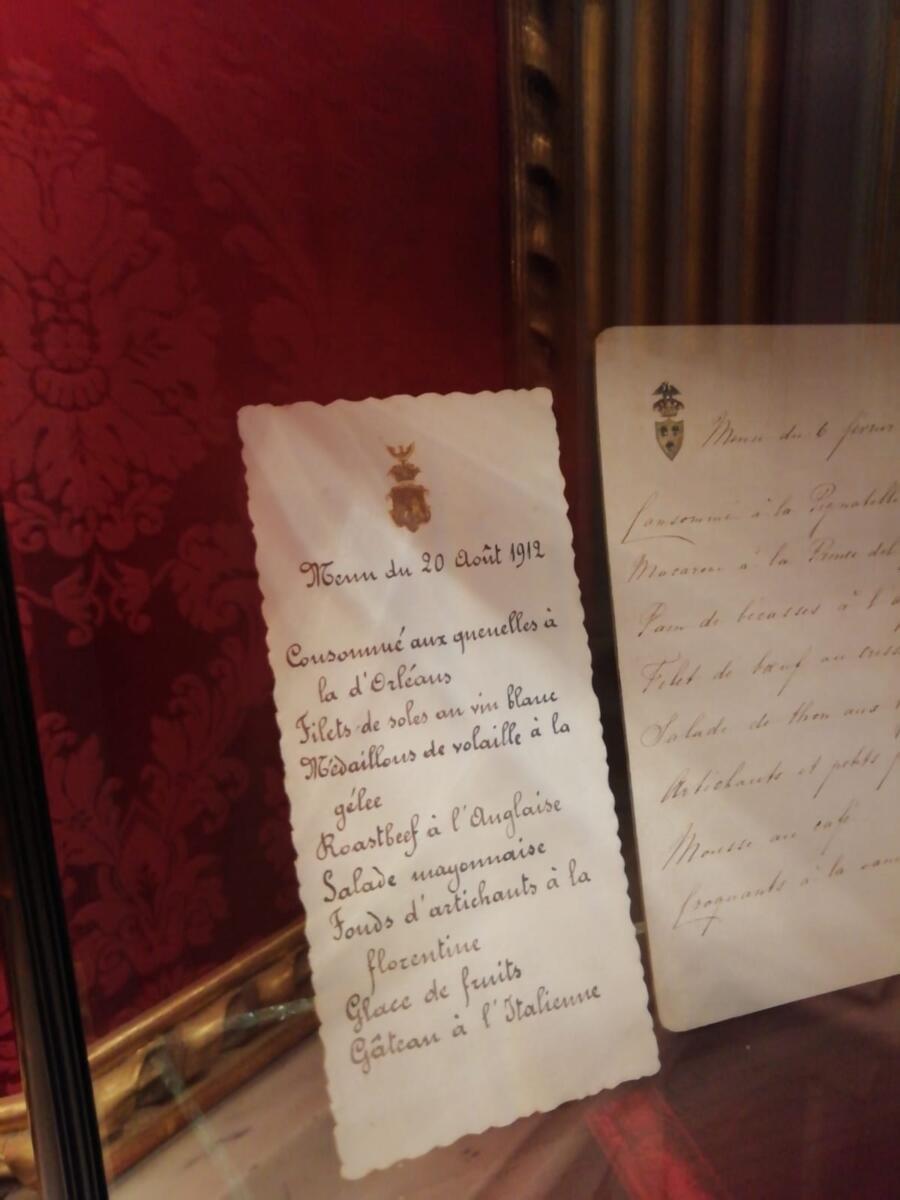 Menu du 20 Août 1912
Consommé aux quenelles à
la d'Orléans
Filets de soles au vin blanc
Médaillons de volaille à la
gélee
Roastbeef à l'Anglaise
Salade mayonnaise
Fonds d'artichauts à la
florentine
Glace de fruits
Gâteau à l'Italienne
Menu du 6 février
Consommé à la Pignatelli
Macaroni à la Prince
Pain de bécasses à l'
Filet de bœuf au
Salade de thon aux
Artichauts et petits
Mousse au café
Croquants à la